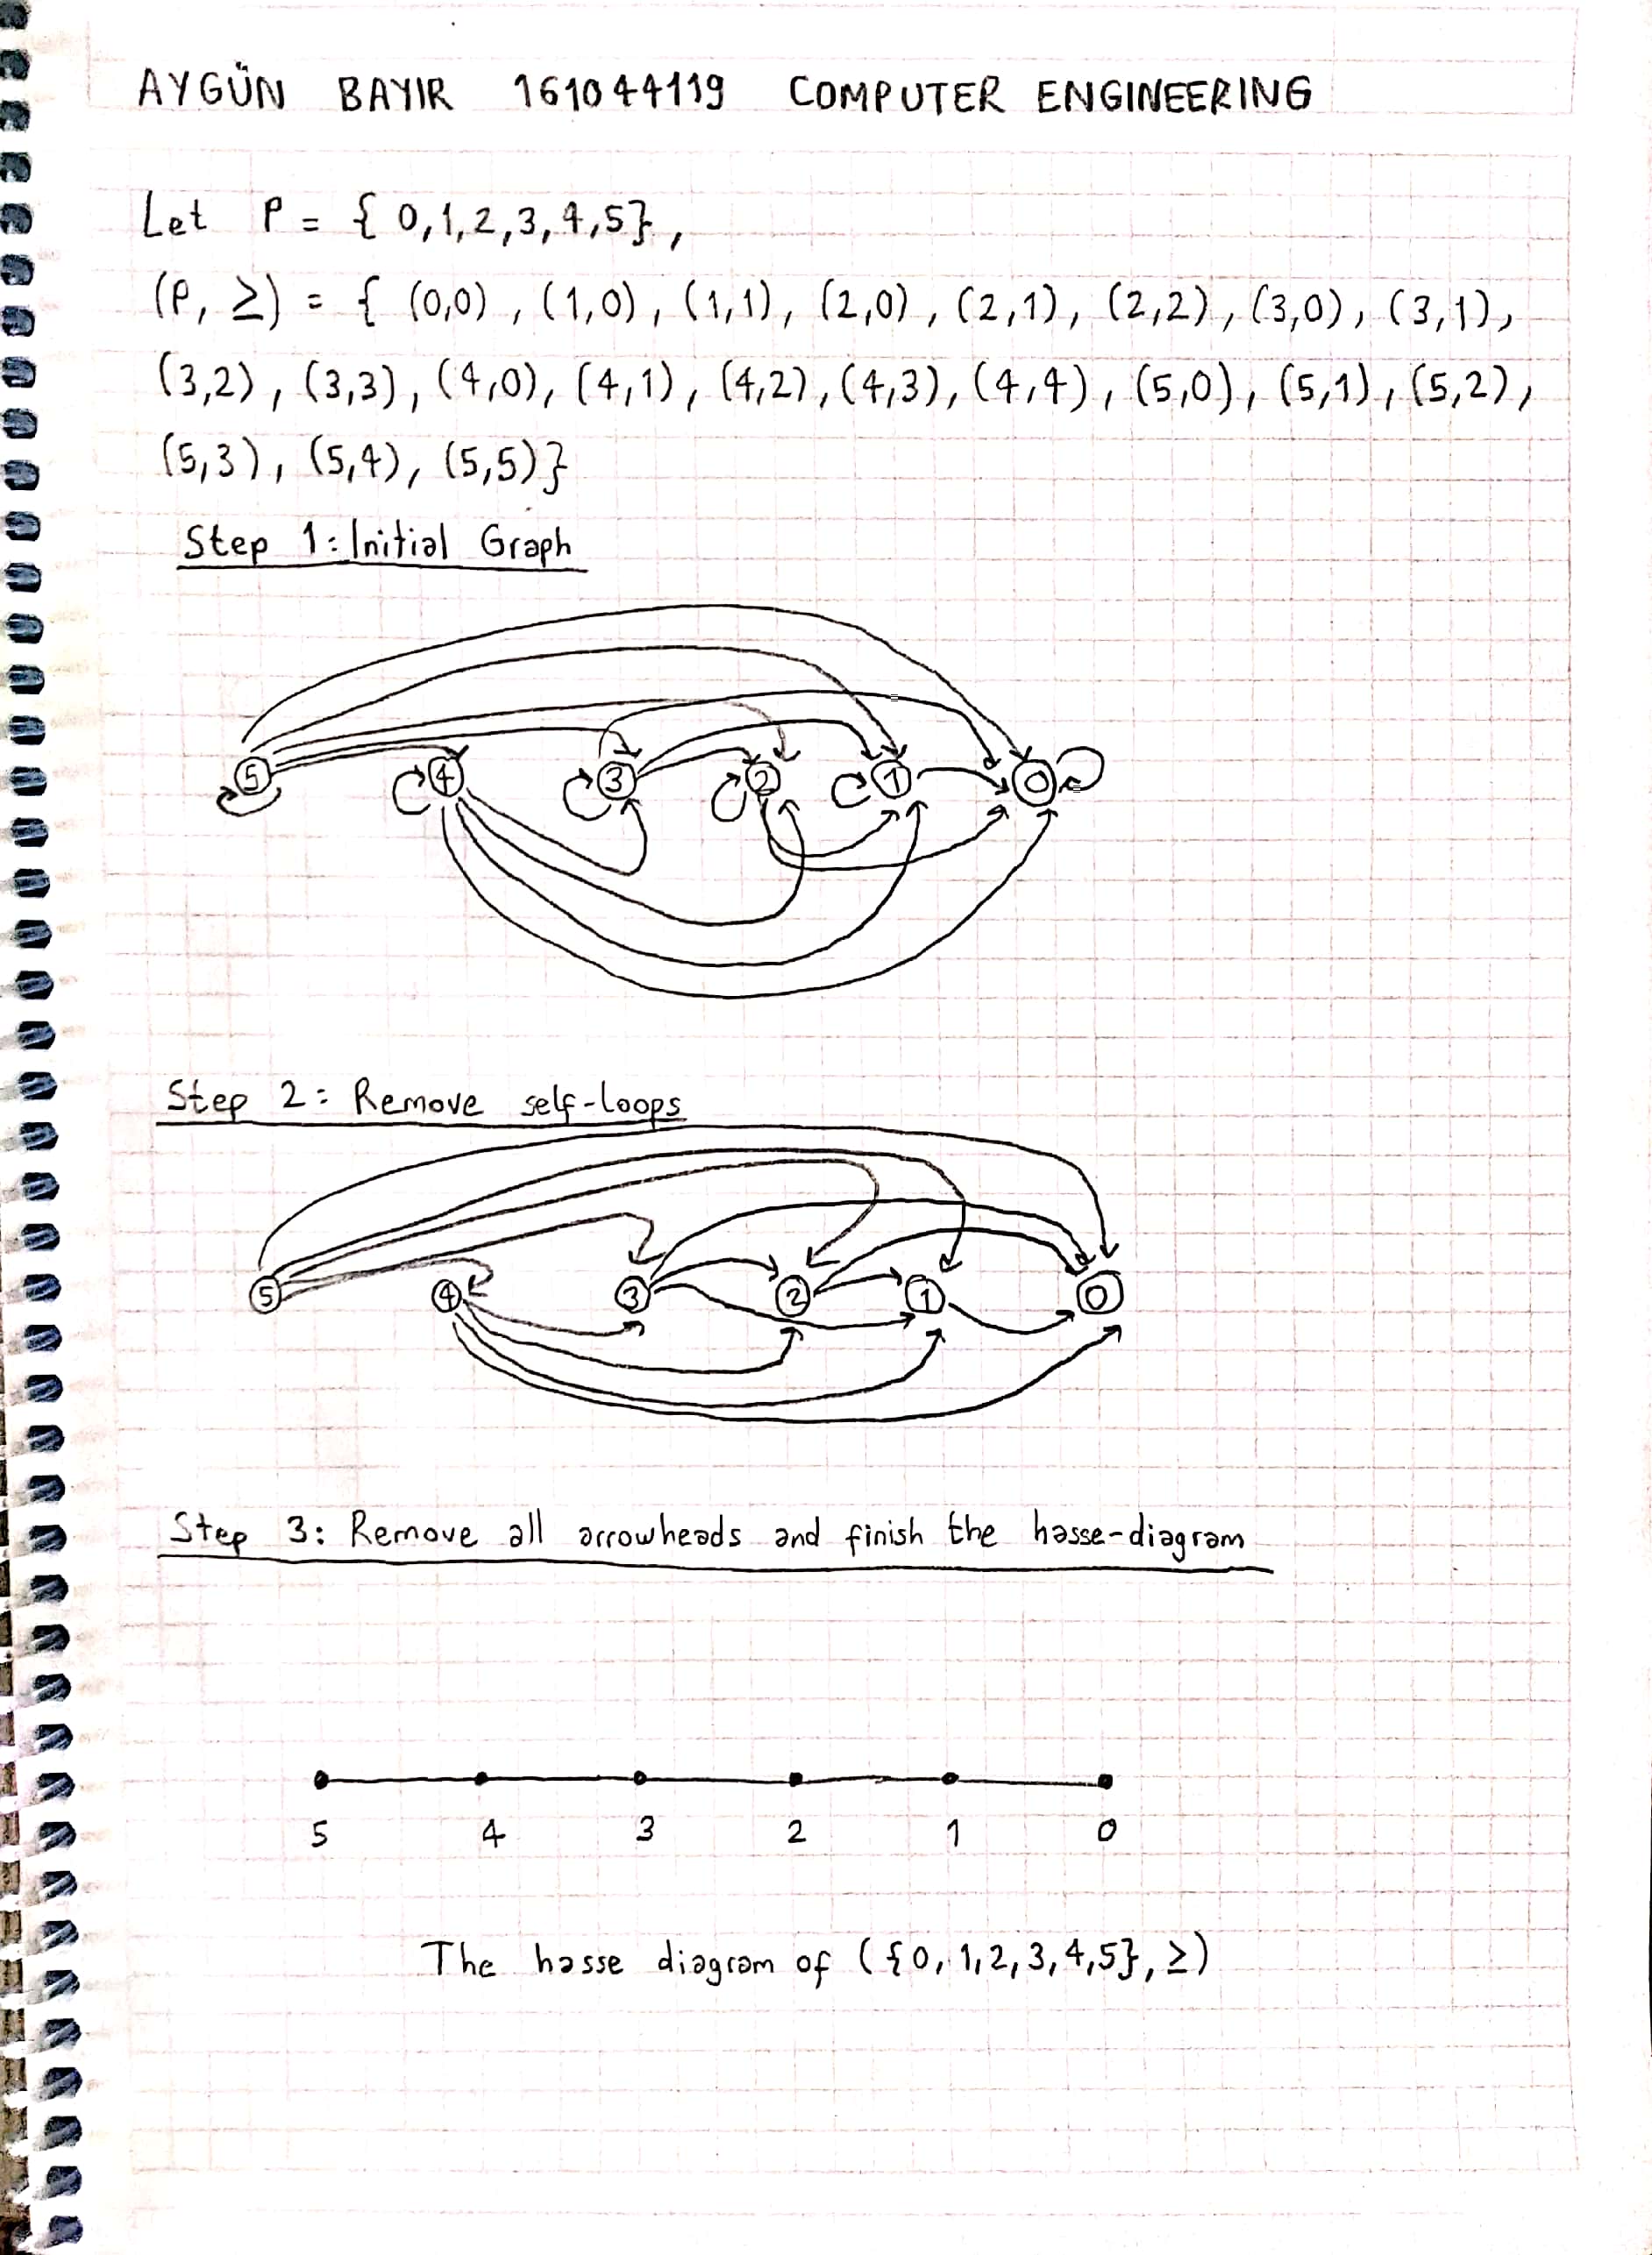 AYGÜN BAYIR 161044119 COMPUTER ENGINEERING
Let P = { 0,1,2,3,4,5},
(P, ≥) = { (0,0) , (1,0), (1,1), (2,0), (2,1), (2,2), (3,0), (3,1),
(3,2), (3,3), (4,0), (4,1), (4,2), (4,3), (4,4), (5,0), (5,1), (5,2),
(5,3), (5,4), (5,5)}
Step 1: Initial Graph
5 4 3 2 1 0
Step 2: Remove self-loops
5 4 3 2 1 0
Step 3: Remove all arrowheads and finish the hasse-diagram
5 4 3 2 1 0
The hasse diagram of ({0,1,2,3,4,5}, ≥)